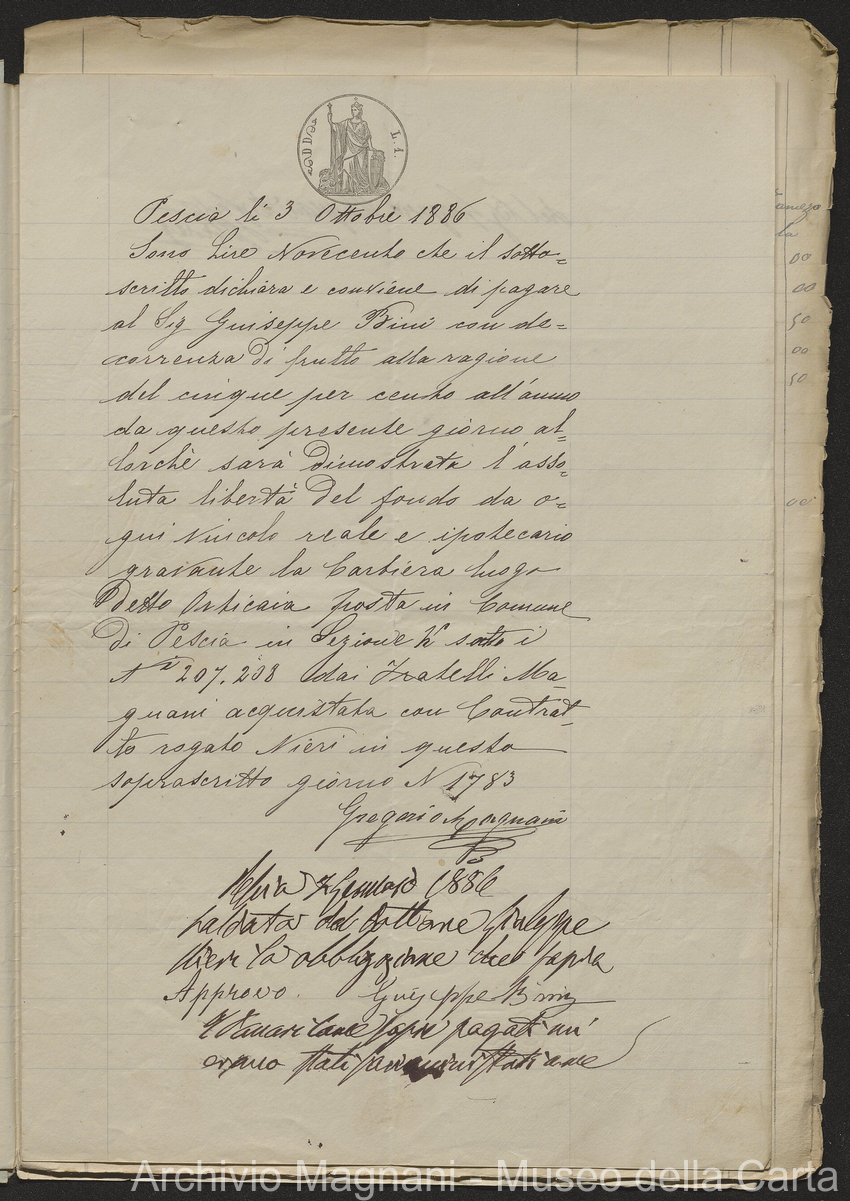 L. 1.
Pescia li 3 Ottobre 1886
Sono Lire Novecento che il sotto=
scritto dichiara e conviene di pagare
al Sig Guiseppe Bini con de=
correnza di frutto alla ragione
del cinque per cento all'anno
da questo presente giorno al=
lorchè sarà dimostrata l'asso=
luta libertà del fondo da o=
gni vincolo reale e ipotecario
gravante la Cartiera luogo
Detto Orticaia posta in Comune
di Pescia in Sezione sotto i
Ni 207. 208 dai Fratelli Ma=
gnani acquistata con Contrat=
to rogato Nieri in questo
soprascritto giorno N 1783
Gregorio Magnani
Gennaio 1886
Saldata dal Dottore Giuseppe
Nieri la obbligazione che sopra
Approvo. Guiseppe Bini
sopra pagati mi
erano stati
Archivio Magnani - Museo della Carta